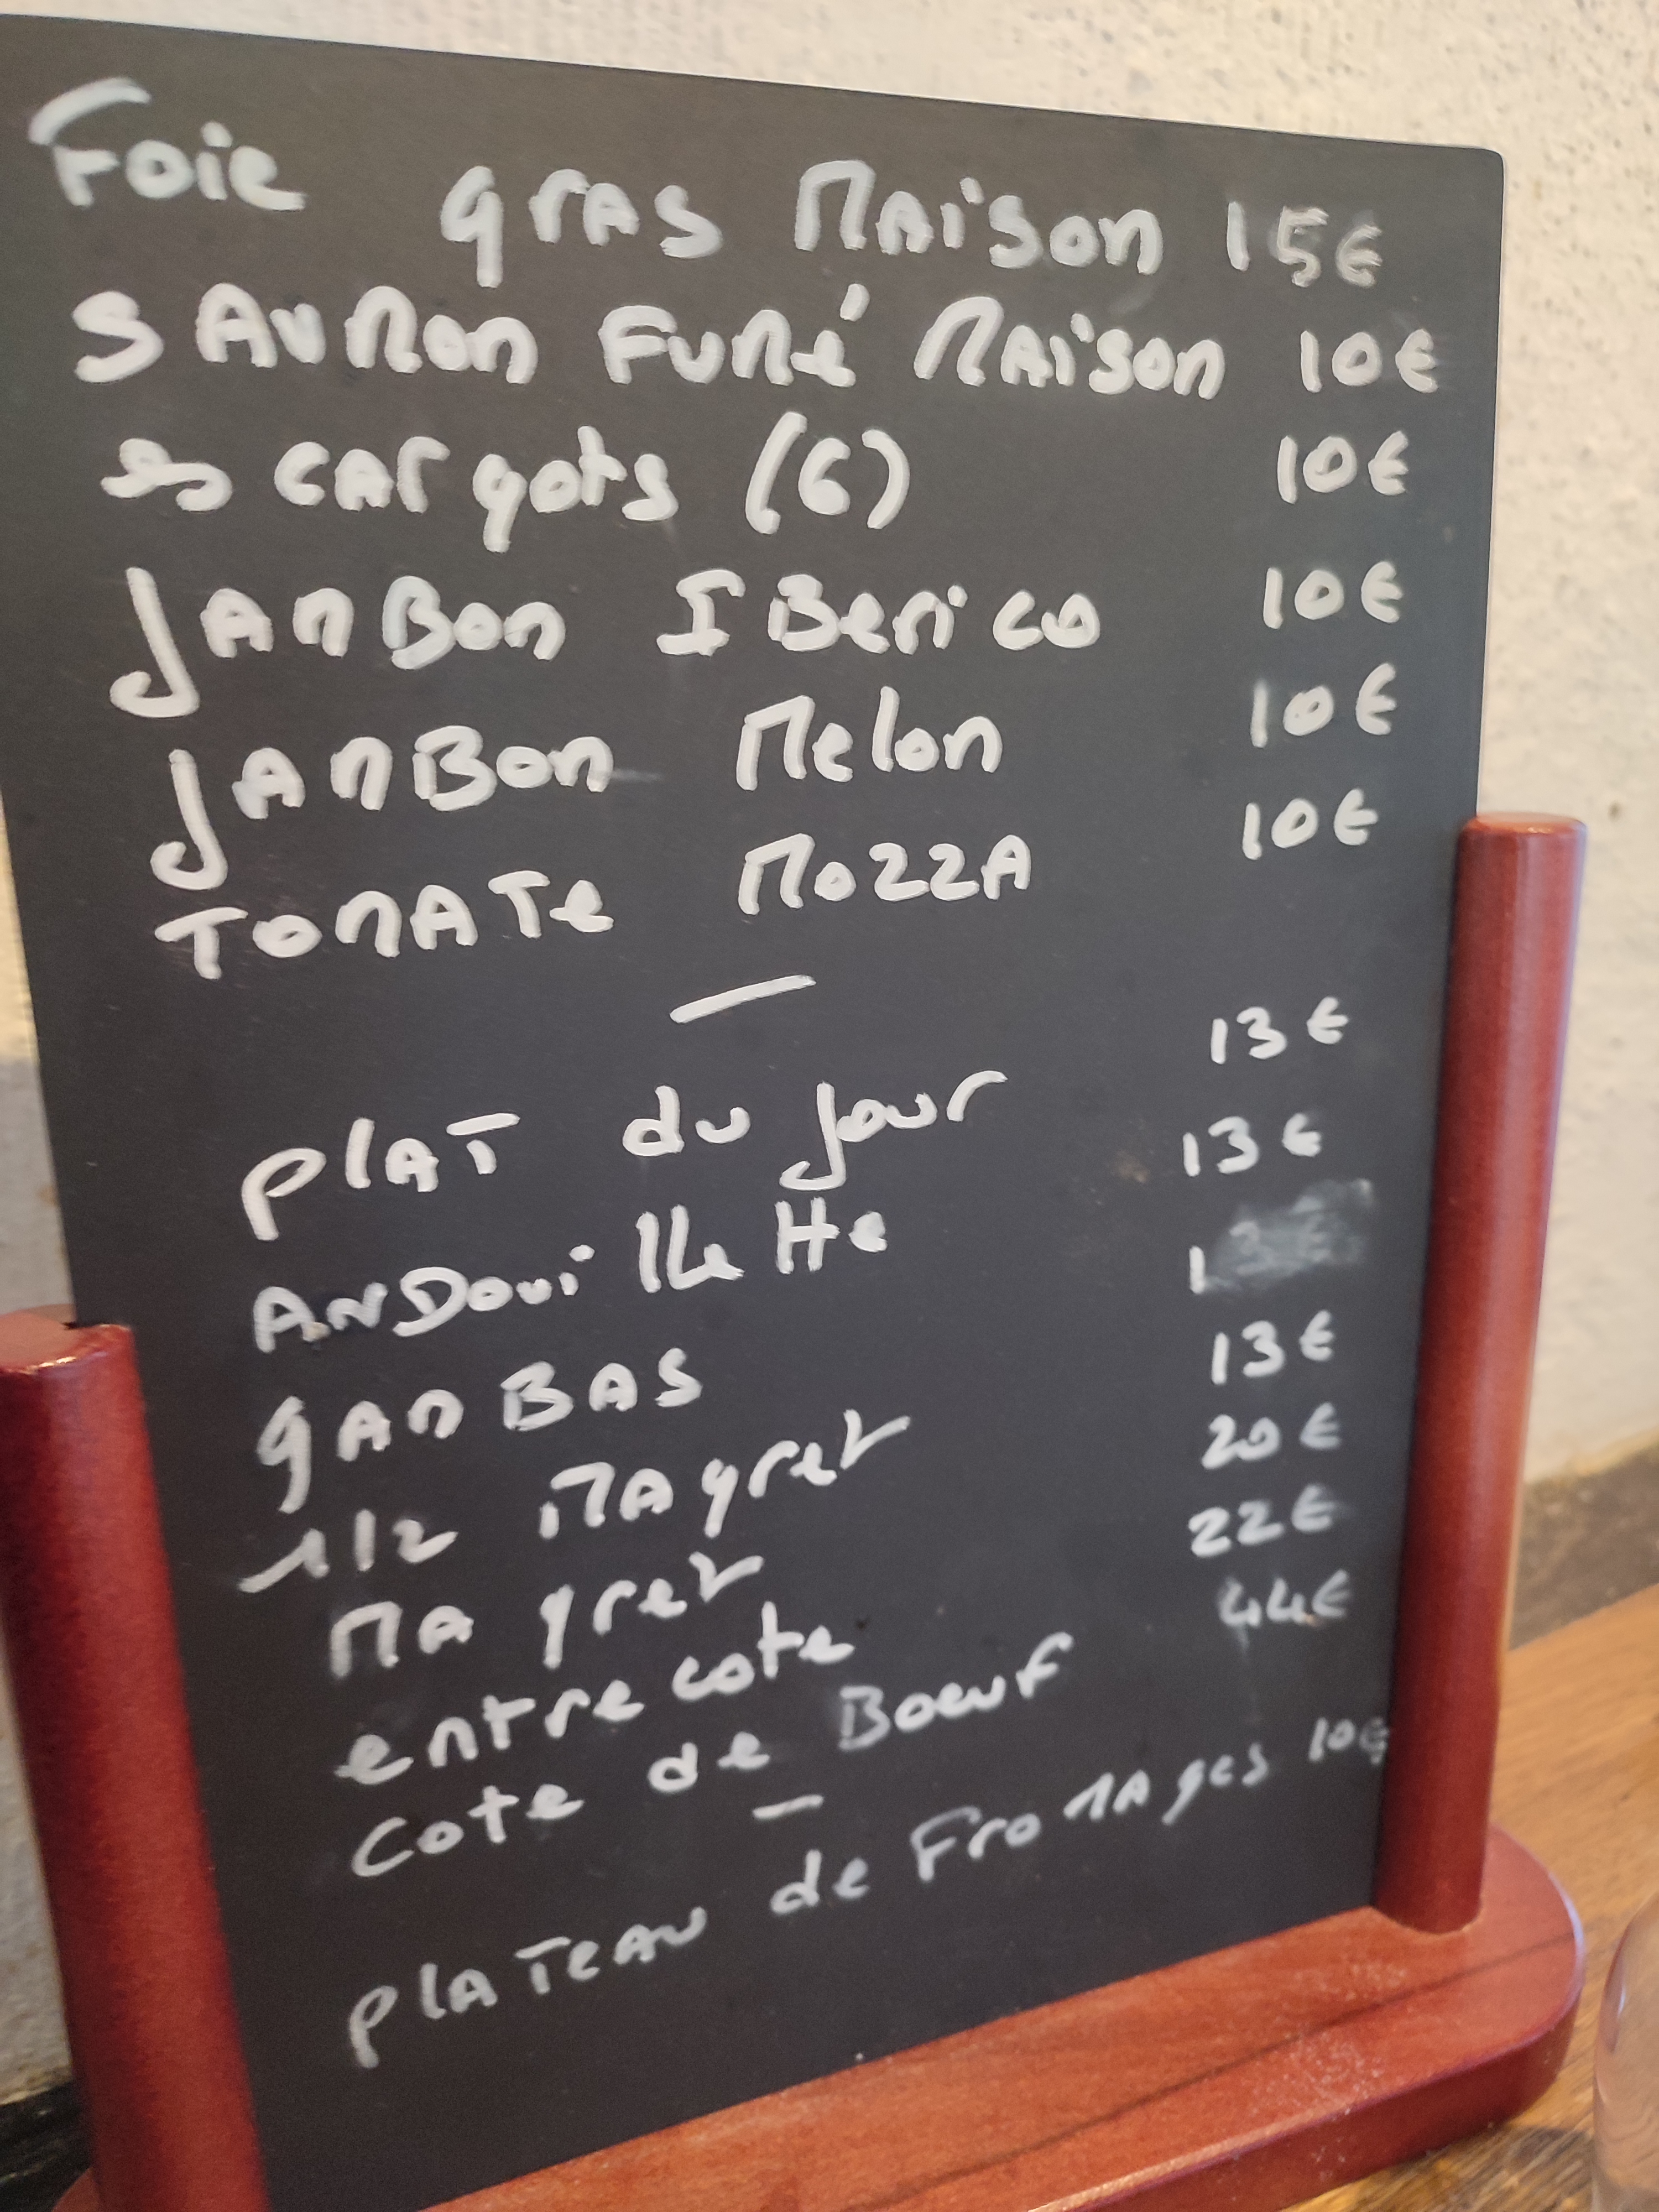 Foie gras Maison 15€
SAUMON FUMÉ MAISON 10€
escargots (6) 10€
JAMBON IBERICO 10€
JAMBON Melon 10€
TOMATE MOZZA 10€
—
PLAT du jour 13€
ANDouillette 13€
gAMBAS 13€
1/2 MAgret 13€
MAgret 20€
entrecote 22€
cote de Boeuf 44€
—
PLATEAU de FroMAges 10€